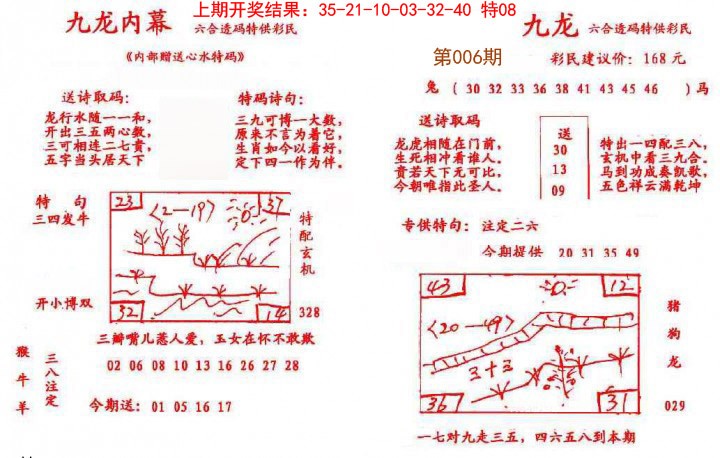 上期开奖结果：35-21-10-03-32-40 特08
九龙内幕 六合透码特供彩民
《内部赠送心水特码》
送诗取码：
龙行水随一一和，
开出三五两心数，
三可相连二七贵，
五字当头居天下
特码诗句：
三九可博一大数，
原来不言为着它，
生肖如今以看好，
定下四一作为伴。
特 句
三四发牛
开小博双
23
37
〈2—19〉
32
14
特配玄机
328
三瓣嘴儿惹人爱，玉女在怀不敢欺
猴牛羊
三八注定
02 06 08 10 13 16 26 27 28
今期送：01 05 16 17
九龙 六合透码特供彩民
第006期
彩民建议价：168元
兔 ( 30 32 33 36 38 41 43 45 46 ) 马
送诗取码：
龙虎相随在门前，
生死相冲看谁人。
贵若天下无可比，
今朝唯指此圣人。
送
30
13
09
特出一四配三八，
玄机中看三九合。
马到功成奏凯歌，
五色祥云满乾坤
专供特句：注定二六
今期提供 20 31 35 49
43
12
〈20—49〉
三十三
36
31
猪
狗
龙
029
一七对九走三五，四六五八到本期